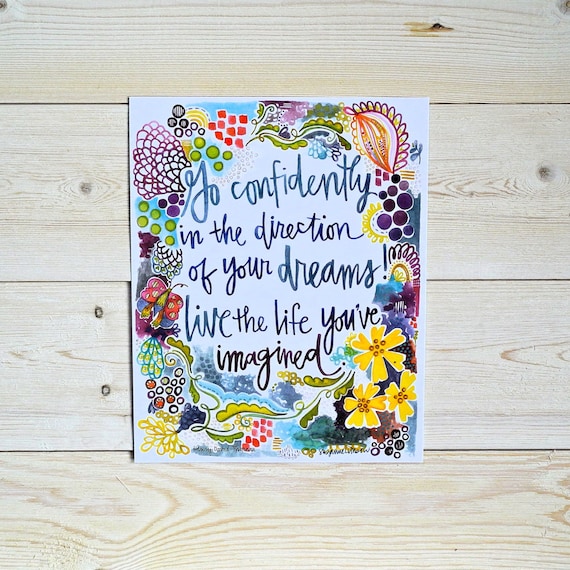 Go confidently
in the direction
of your dreams!
live the life you've
imagined.